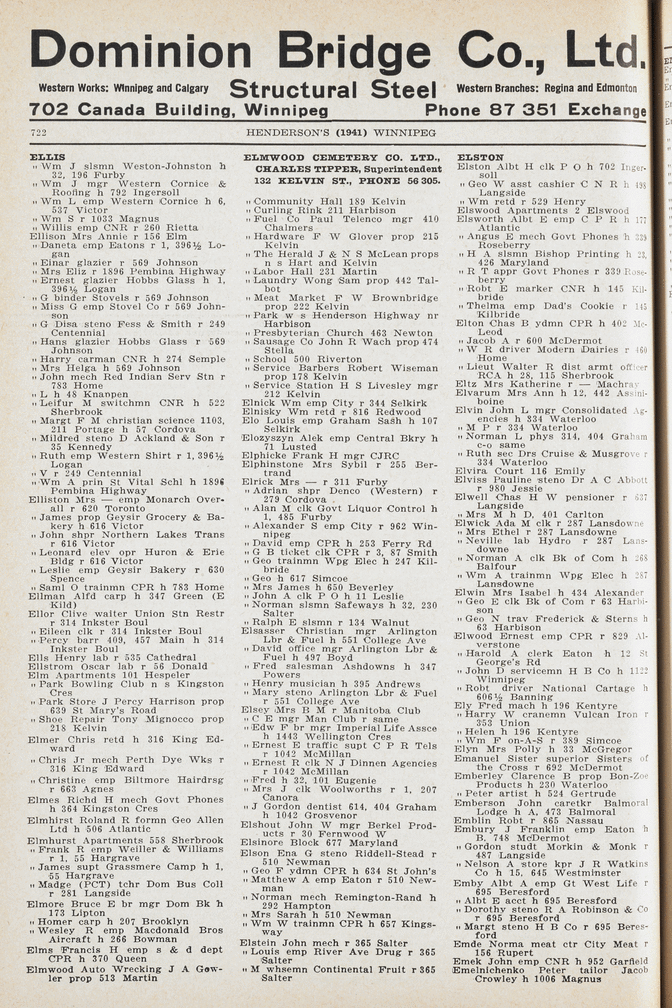 Dominion Bridge Co., Ltd.
Western Works: Winnipeg and Calgary Structural Steel Western Branches: Regina and Edmonton
702 Canada Building, Winnipeg Phone 87 351 Exchange
722 HENDERSON'S (1941) WINNIPEG
ELLIS
" Wm J slsmn Weston-Johnston h
32, 196 Furby
" Wm J mgr Western Cornice &
Roofing h 792 Ingersoll
" Wm L emp Western Cornice h 6,
537 Victor
" Wm S r 1033 Magnus
" Willis emp CNR r 260 Rietta
Ellison Mrs Annie r 156 Elm
" Daneta emp Eatons r 1, 396½ Lo-
gan
" Einar glazier r 569 Johnson
" Mrs Eliz r 1896 Pembina Highway
" Ernest glazier Hobbs Glass h 1,
396½ Logan
" G binder Stovels r 569 Johnson
" Miss G emp Stovel Co r 569 John-
son
" G Disa steno Fess & Smith r 249
Centennial
" Hans glazier Hobbs Glass r 569
Johnson
" Harry carman CNR h 274 Semple
" Mrs Helga h 569 Johnson
" John mech Red Indian Serv Stn r
783 Home
" L h 48 Knanpen
" Leifur M switchmn CNR h 522
Sherbrook
" Margt F M christian science 1103,
211 Portage h 57 Cordova
" Mildred steno D Ackland & Son r
35 Kennedy
" Ruth emp Western Shirt r 1, 396½
Logan
" V r 249 Centennial
" Wm A prin St Vital Schl h 1896
Pembina Highway
Elliston Mrs — emp Monarch Over-
all r 620 Toronto
" James prop Geysir Grocery & Ba-
kery h 616 Victor
" John shpr Northern Lakes Trans
r 616 Victor
" Leonard elev opr Huron & Erie
Bldg r 616 Victor
" Leslie emp Geysir Bakery r 630
Spence
" Saml O trainmn CPR h 783 Home
Ellman Alfd carp h 347 Green (E
Kild)
Ellor Clive waiter Union Stn Restr
r 314 Inkster Boul
" Eileen clk r 314 Inkster Boul
" Percy barr 409, 457 Main h 314
Inkster Boul
Ells Henry lab r 535 Cathedral
Ellstrom Oscar lab r 56 Donald
Elm Apartments 101 Hespeler
" Park Bowling Club n s Kingston
Cres
" Park Store J Percy Harrison prop
639 St Mary's Road
" Shoe Repair Tony Mignocco prop
218 Kelvin
Elmer Chris retd h 316 King Ed-
ward
" Chris Jr mech Perth Dye Wks r
316 King Edward
" Christine emp Biltmore Hairdrsg
r 663 Agnes
Elmes Richd H mech Govt Phones
h 364 Kingston Cres
Elmhirst Roland R formn Geo Allen
Ltd h 506 Atlantic
Elmhurst Apartments 558 Sherbrook
" Frank R emp Weiller & Williams
r 1, 55 Hargrave
" James supt Grassmere Camp h 1,
55 Hargrave
" Madge (PCT) tchr Dom Bus Coll
r 281 Langside
Elmore Bruce E br mgr Dom Bk h
173 Lipton
" Homer carp h 207 Brooklyn
" Wesley R emp Macdonald Bros
Aircraft h 266 Bowman
Elms Francis H emp s & d dept
CPR h 370 Queen
Elmwood Auto Wrecking J A Gow-
ler prop 513 Martin
ELMWOOD CEMETERY CO. LTD.,
CHARLES TIPPER, Superintendent
132 KELVIN ST., PHONE 56 305.
" Community Hall 189 Kelvin
" Curling Rink 211 Harbison
" Fuel Co Paul Telenco mgr 410
Chalmers
" Hardware F W Glover prop 215
Kelvin
" The Herald J & N S McLean props
n s Hart and Kelvin
" Labor Hall 231 Martin
" Laundry Wong Sam prop 442 Tal-
bot
" Meat Market F W Brownbridge
prop 222 Kelvin
" Park w s Henderson Highway nr
Harbison
" Presbyterian Church 463 Newton
" Sausage Co John R Wach prop 474
Stella
" School 500 Riverton
" Service Barbers Robert Wiseman
prop 178 Kelvin
" Service Station H S Livesley mgr
212 Kelvin
Elnick Wm emp City r 344 Selkirk
Elnisky Wm retd r 816 Redwood
Elo Louis emp Graham Sash h 107
Selkirk
Elozyszyn Alek emp Central Bkry h
71 Lusted
Elphicke Frank H mgr CJRC
Elphinstone Mrs Sybil r 255 Ber-
trand
Elrick Mrs — r 311 Furby
" Adrian shpr Denco (Western) r
279 Cordova
" Alan M clk Govt Liquor Control h
1, 485 Furby
" Alexander S emp City r 962 Win-
nipeg
" David emp CPR h 253 Ferry Rd
" G B ticket clk CPR r 3, 87 Smith
" Geo trainmn Wpg Elec h 247 Kil-
bride
" Geo h 617 Simcoe
" Mrs James h 650 Beverley
" John A clk P O h 11 Leslie
" Norman slsmn Safeways h 32, 230
Salter
" Ralph E slsmn r 134 Walnut
Elsasser Christian mgr Arlington
Lbr & Fuel h 551 College Ave
" David office mgr Arlington Lbr &
Fuel h 497 Boyd
" Fred salesman Ashdowns h 347
Powers
" Henry musician h 395 Andrews
" Mary steno Arlington Lbr & Fuel
r 551 College Ave
Elsey Mrs B M r Manitoba Club
" C E mgr Man Club r same
" Edw F br mgr Imperial Life Assce
h 1443 Wellington Cres
" Ernest E traffic supt C P R Tels
r 1042 McMillan
" Ernest R clk N J Dinnen Agencies
r 1042 McMillan
" Fred h 32, 101 Eugenie
" Mrs J clk Woolworths r 1, 207
Canora
" J Gordon dentist 614, 404 Graham
h 1042 Grosvenor
Elshout John W mgr Berkel Prod-
ucts r 30 Fernwood W
Elsinore Block 677 Maryland
Elson Ena G steno Riddell-Stead r
510 Newman
" Geo F ydmn CPR h 634 St John's
" Matthew A emp Eaton r 510 New-
man
" Norman mech Remington-Rand h
292 Hampton
" Mrs Sarah h 510 Newman
" Wm W trainmn CPR h 657 Kings-
way
Elstein John mech r 365 Salter
" Louis emp River Ave Drug r 365
Salter
" M whsemn Continental Fruit r 365
Salter
ELSTON
Elston Albt H clk P O h 702 Inger-
soll
" Geo W asst cashier C N R h 498
Langside
" Wm retd r 529 Henry
Elswood Apartments 2 Elswood
Elsworth Albt E emp C P R h 177
Atlantic
" Angus E mech Govt Phones h 339
Roseberry
" H A slsmn Bishop Printing h 23,
426 Maryland
" R T appr Govt Phones r 339 Rose-
berry
" Robt E marker CNR h 145 Kil-
bride
" Thelma emp Dad's Cookie r 145
Kilbride
Elton Chas B ydmn CPR h 402 Mc-
Leod
" Jacoba A r 600 McDermot
" W R driver Modern Dairies r 460
Home
" Lieut Walter R dist armt officer
RCA h 28, 115 Sherbrook
Eltz Mrs Katherine r — Machray
Elvarum Mrs Ann h 12, 442 Assini-
boine
Elvin John L mgr Consolidated Ag-
encies h 334 Waterloo
" M P r 334 Waterloo
" Norman L phys 314, 404 Graham
c-o same
" Ruth sec Drs Cruise & Musgrove r
334 Waterloo
Elvira Court 116 Emily
Elviss Pauline steno Dr A C Abbott
r 980 Jessie
Elwell Chas H W pensioner r 637
Langside
" Mrs M h D, 401 Carlton
Elwick Ada M clk r 287 Lansdowne
" Mrs Ethel r 287 Lansdowne
" Neville lab Hydro r 287 Lans-
downe
" Norman A clk Bk of Com h 268
Balfour
" Wm A trainmn Wpg Elec h 287
Lansdowne
Elwin Mrs Isabel h 434 Alexander
" Geo E clk Bk of Com r 63 Harbi-
son
" Geo N trav Frederick & Sterns h
63 Harbison
Elwood Ernest emp CPR r 829 Al-
verstone
" Harold A clerk Eaton h 12 St
George's Rd
" John D servicemn H B Co h 1122
Winnipeg
" Robt driver National Cartage h
606½ Banning
Ely Fred mach h 196 Kentyre
" Harry W cranemn Vulcan Iron r
353 Union
" Helen h 196 Kentyre
" Wm F on-A-S r 389 Simcoe
Elyn Mrs Polly h 33 McGregor
Emanuel Sister superior Sisters of
the Cross r 692 McDermot
Emberley Clarence B prop Bon-Zoe
Products h 230 Waterloo
" Peter artist h 524 Gertrude
Emberson John caretkr Balmoral
Lodge h A, 473 Balmoral
Emblin Robt r 865 Nassau
Embury J Franklin emp Eaton h
B, 748 McDermot
" Gordon studt Morkin & Monk r
487 Langside
" Nelson A store kpr J R Watkins
Co h 15, 645 Westminster
Emby Albt A emp Gt West Life r
695 Beresford
" Albt E acct h 695 Beresford
" Dorothy steno R A Robinson & Co
r 695 Beresford
" Margt steno H B Co r 695 Beres-
ford
Emde Norma meat ctr City Meat r
156 Rupert
Emek John emp CNR h 952 Garfield
Emelnichenko Peter tailor Jacob
Crowley h 1006 Magnus